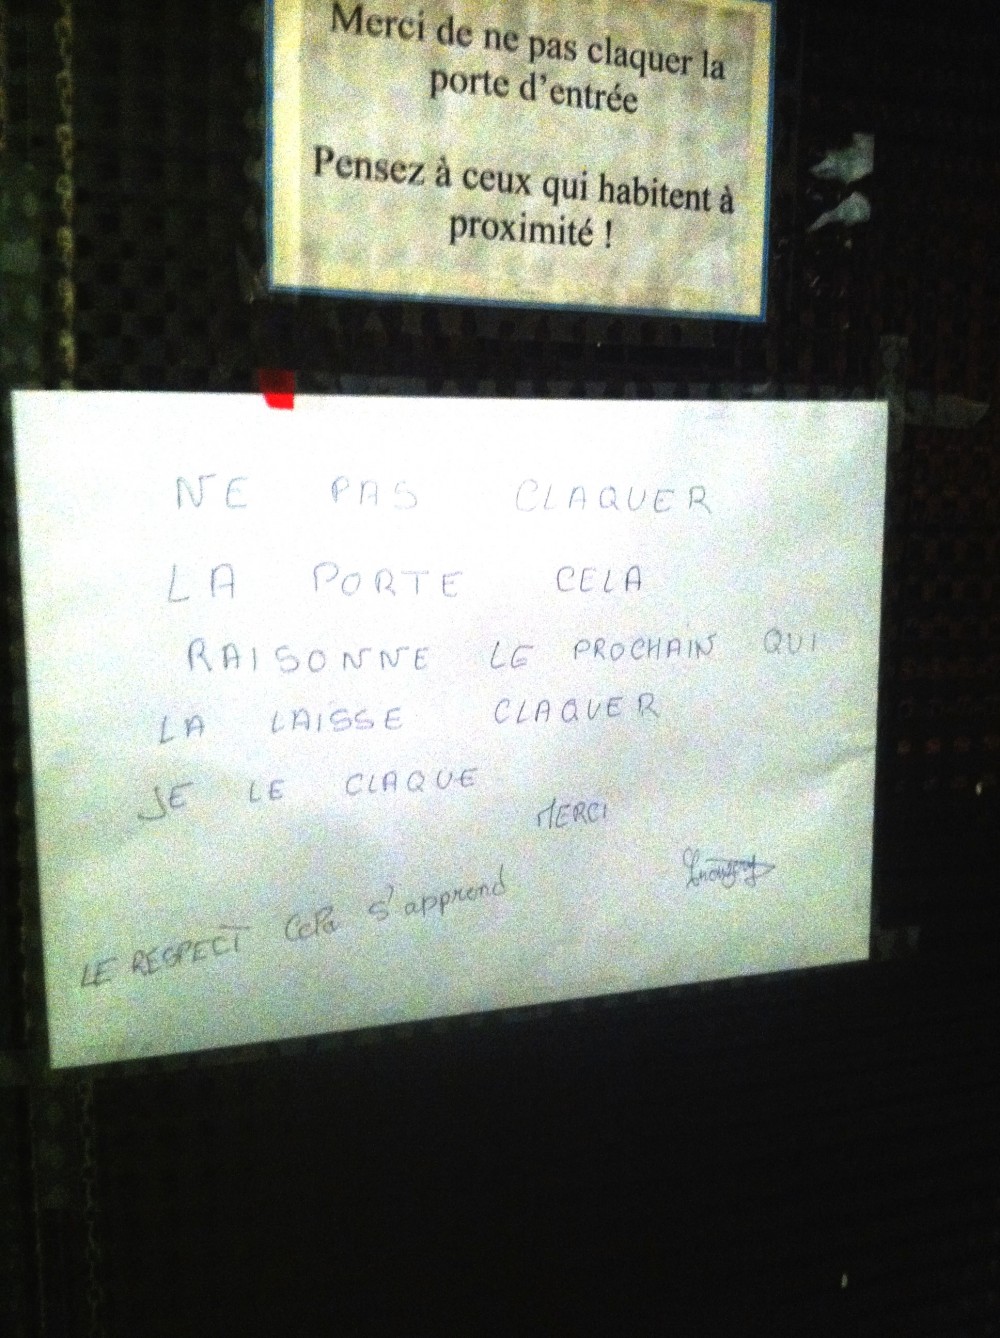 Merci de ne pas claquer la
porte d'entrée
Pensez à ceux qui habitent à
proximité !
NE PAS CLAQUER
LA PORTE CELA
RAISONNE LE PROCHAIN QUI
LA LAISSE CLAQUER
JE LE CLAQUE
MERCI
LE RESPECT CeLa s'apprend